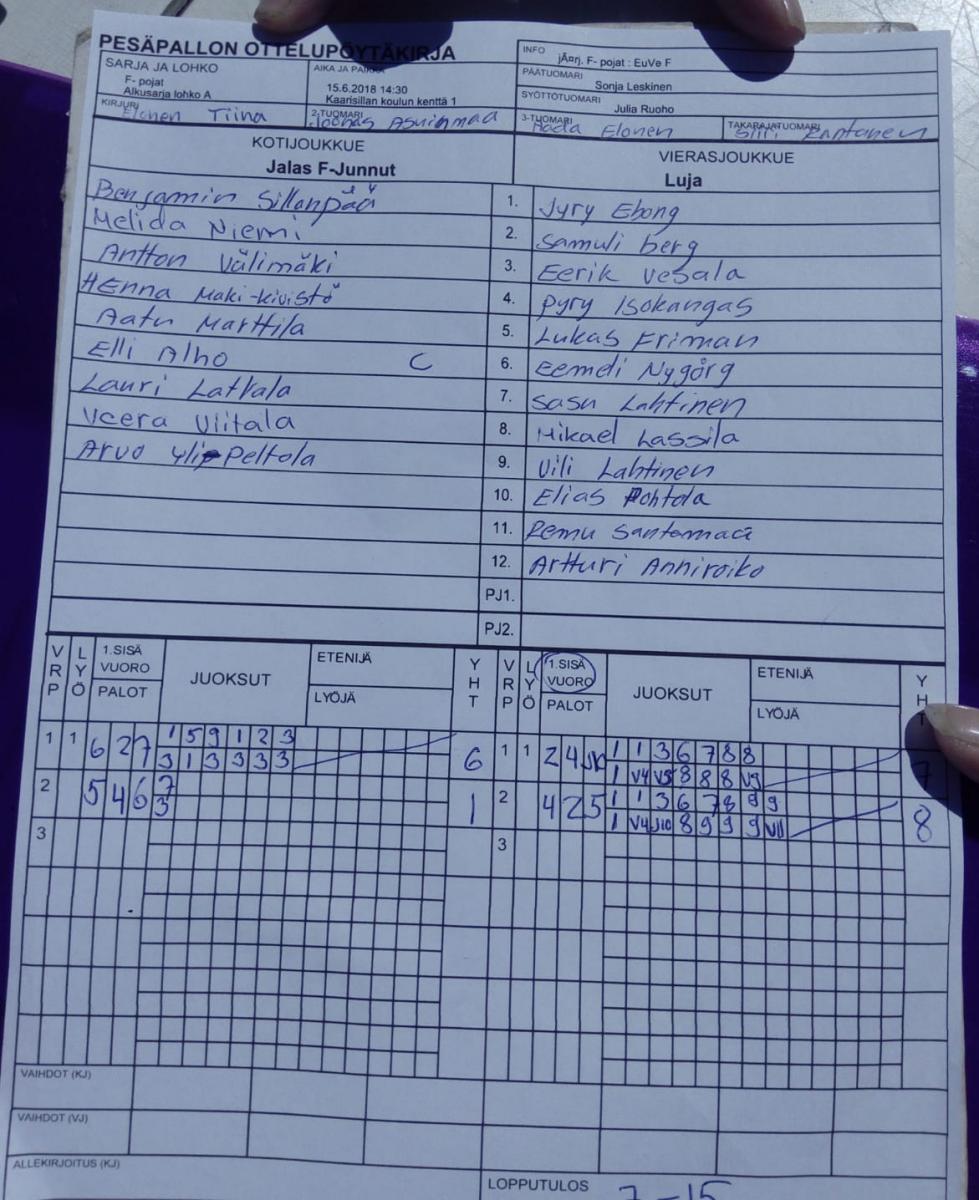 PESÄPALLON OTTELUPÖYTÄKIRJA
SARJA JA LOHKO
F- pojat
Alkusarja lohko A
AIKA JA PAIKKA
15.6.2018 14:30
Kaarisillan koulun kenttä 1
INFO
jÄ¤rj. F- pojat : EuVe F
PÄÄTUOMARI
Sonja Leskinen
SYÖTTÖTUOMARI
Julia Ruoho
KIRJURI
Elonen Tiina
2-TUOMARI
Joonas Asuinmaa
3-TUOMARI
Elonen
TAKARAJATUOMARI
Siiri Rantanen
KOTIJOUKKUE
Jalas F-Junnut
VIERASJOUKKUE
Luja
Benjamin Sillanpää
1. Jyry Ebong
Melida Niemi
2. Samuli berg
Antton Välimäki
3. Eerik vesala
HEnna Mäki-kivistö
4. Pyry Isokangas
Aatu Marttila
5. Lukas Friman
Elli Alho C
6. Eemeli Nygårg
Lauri Latvala
7. Sasu Lahtinen
Veera Viitala
8. Mikael Lassila
Arvo Yli-Peltola
9. Vili Lahtinen
10. Elias Pohtola
11. Remu Santamaa
12. Artturi Anniroiko
PJ1.
PJ2.
VRP LYÖ 1.SISÄ VUORO PALOT JUOKSUT ETENIJÄ LYÖJÄ YHT
VRP LYÖ 1.SISÄ VUORO PALOT JUOKSUT ETENIJÄ LYÖJÄ YHT
1 1 6 2 7 1 5 9 1 2 3
3 1 3 3 3 3 6
1 1 2 4 1 1 3 6 7 8 8
1 V4 V5 8 8 8 V9 7
2 5 4 6 7
3 1
2 4 2 5 1 1 3 6 7 8 9 9
1 V4 J10 8 9 9 9 V11 8
3
3
VAIHDOT (KJ)
VAIHDOT (VJ)
ALLEKIRJOITUS (KJ)
LOPPUTULOS 7-15